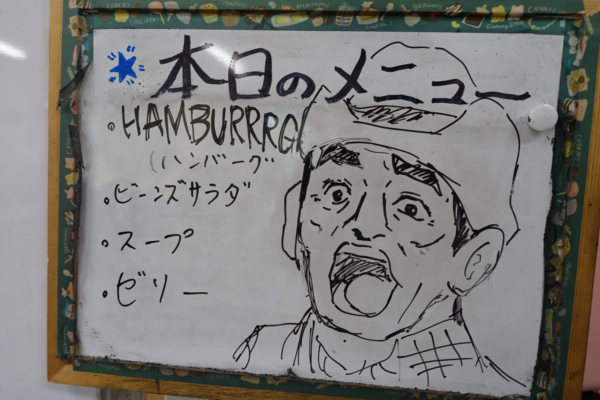 本日のメニュー
HAMBURRRG
(ハンバーグ
ビーンズサラダ
スープ
ビリー